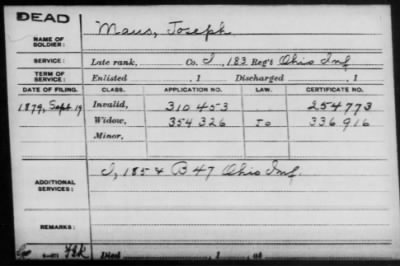 DEAD
NAME OF SOLDIER: Maus, Joseph
SERVICE: Late rank, Co. I, 183 Reg't Ohio Inf.
TERM OF SERVICE: Enlisted , 1 Discharged , 1
DATE OF FILING. CLASS. APPLICATION NO. LAW. CERTIFICATE NO.
1879, Sept. 19 Invalid, 310 453 254773
Widow, 354 326 336 916
Minor,
ADDITIONAL SERVICES: I, 185 & B 47 Ohio Inf.
REMARKS:
Died , 1 , at